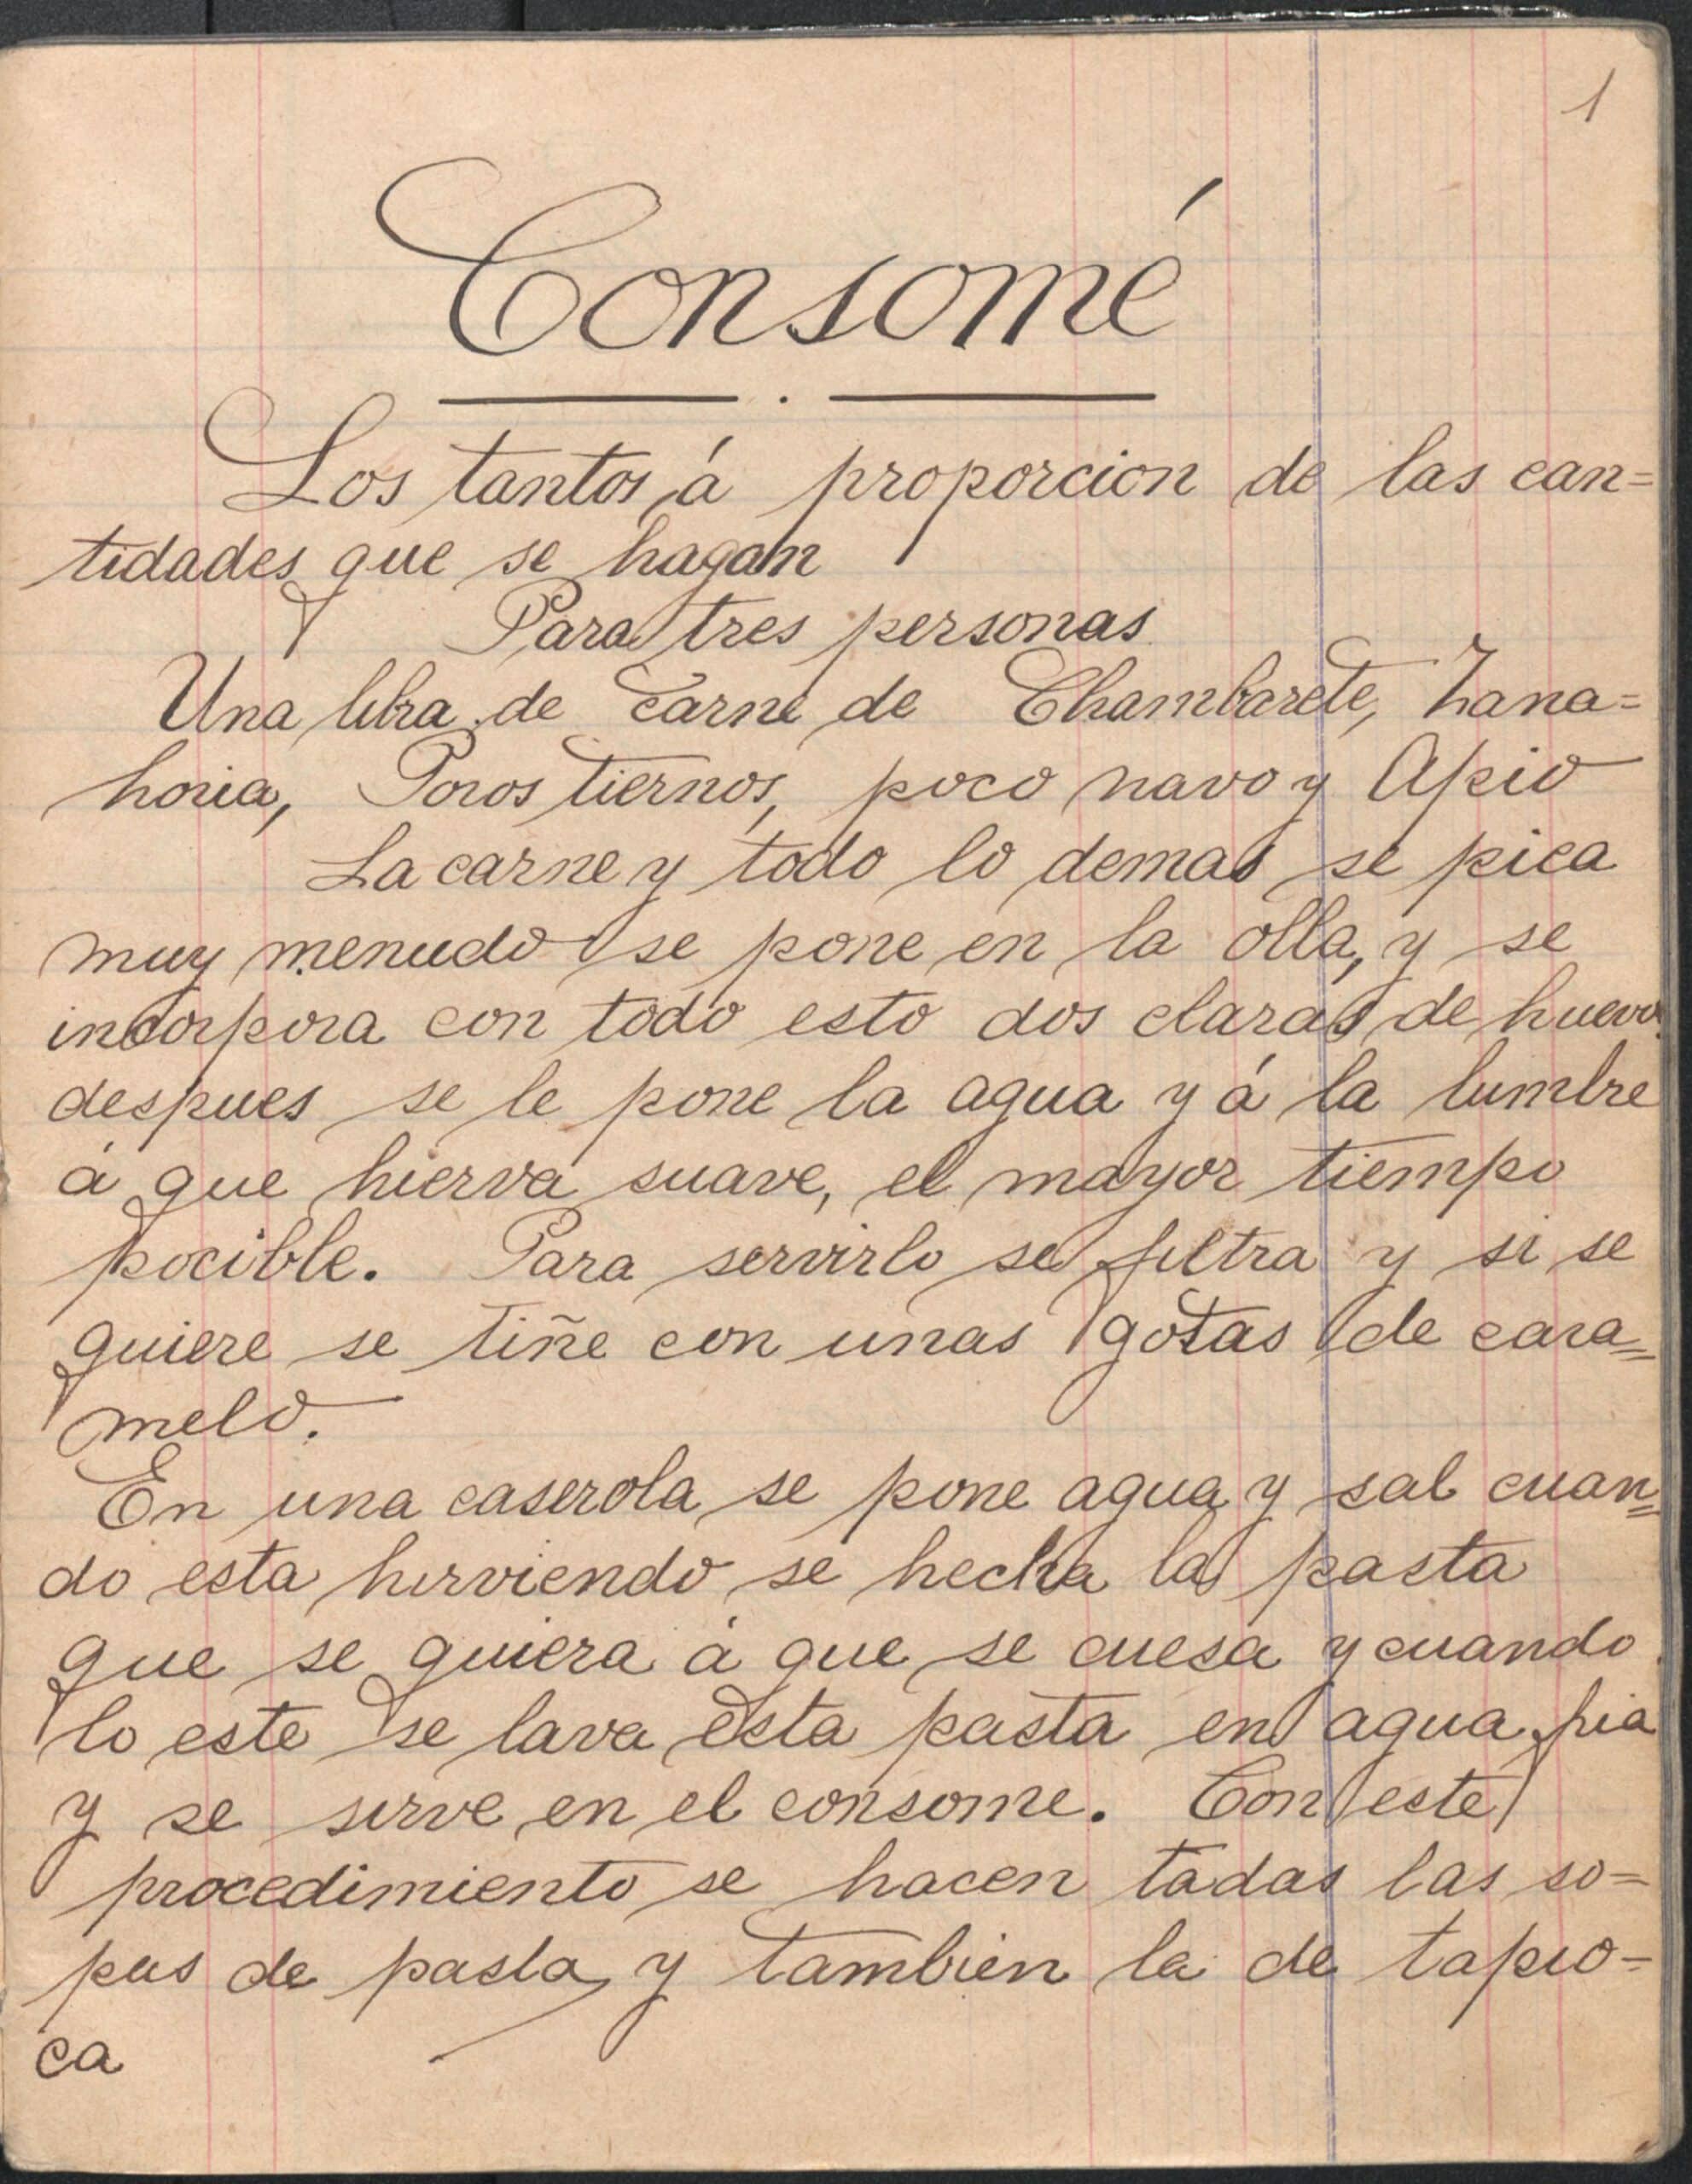 1
Consomé
Los tantos á proporcion de las can=
tidades que se hagan
Para tres personas
Una libra de carne de Chambarete, Zana=
horia, Poros tiernos, poco navo y Apio
La carne y todo lo demas se pica
muy menudo se pone en la olla, y se
incorpora con todo esto dos claras de huevo
despues se le pone la agua y á la lumbre
á que hierva suave, el mayor tiempo
pocible. Para servirlo se filtra y si se
quiere se tiñe con unas gotas de cara=
melo.
En una caserola se pone agua y sal cuan=
do esta hirviendo se hecha la pasta
que se quiera á que se cuesa y cuando
lo este se lava esta pasta en agua fria
y se sirve en el consome. Con este
procedimiento se hacen tadas las so=
pas de pasta y tambien la de tapio=
ca